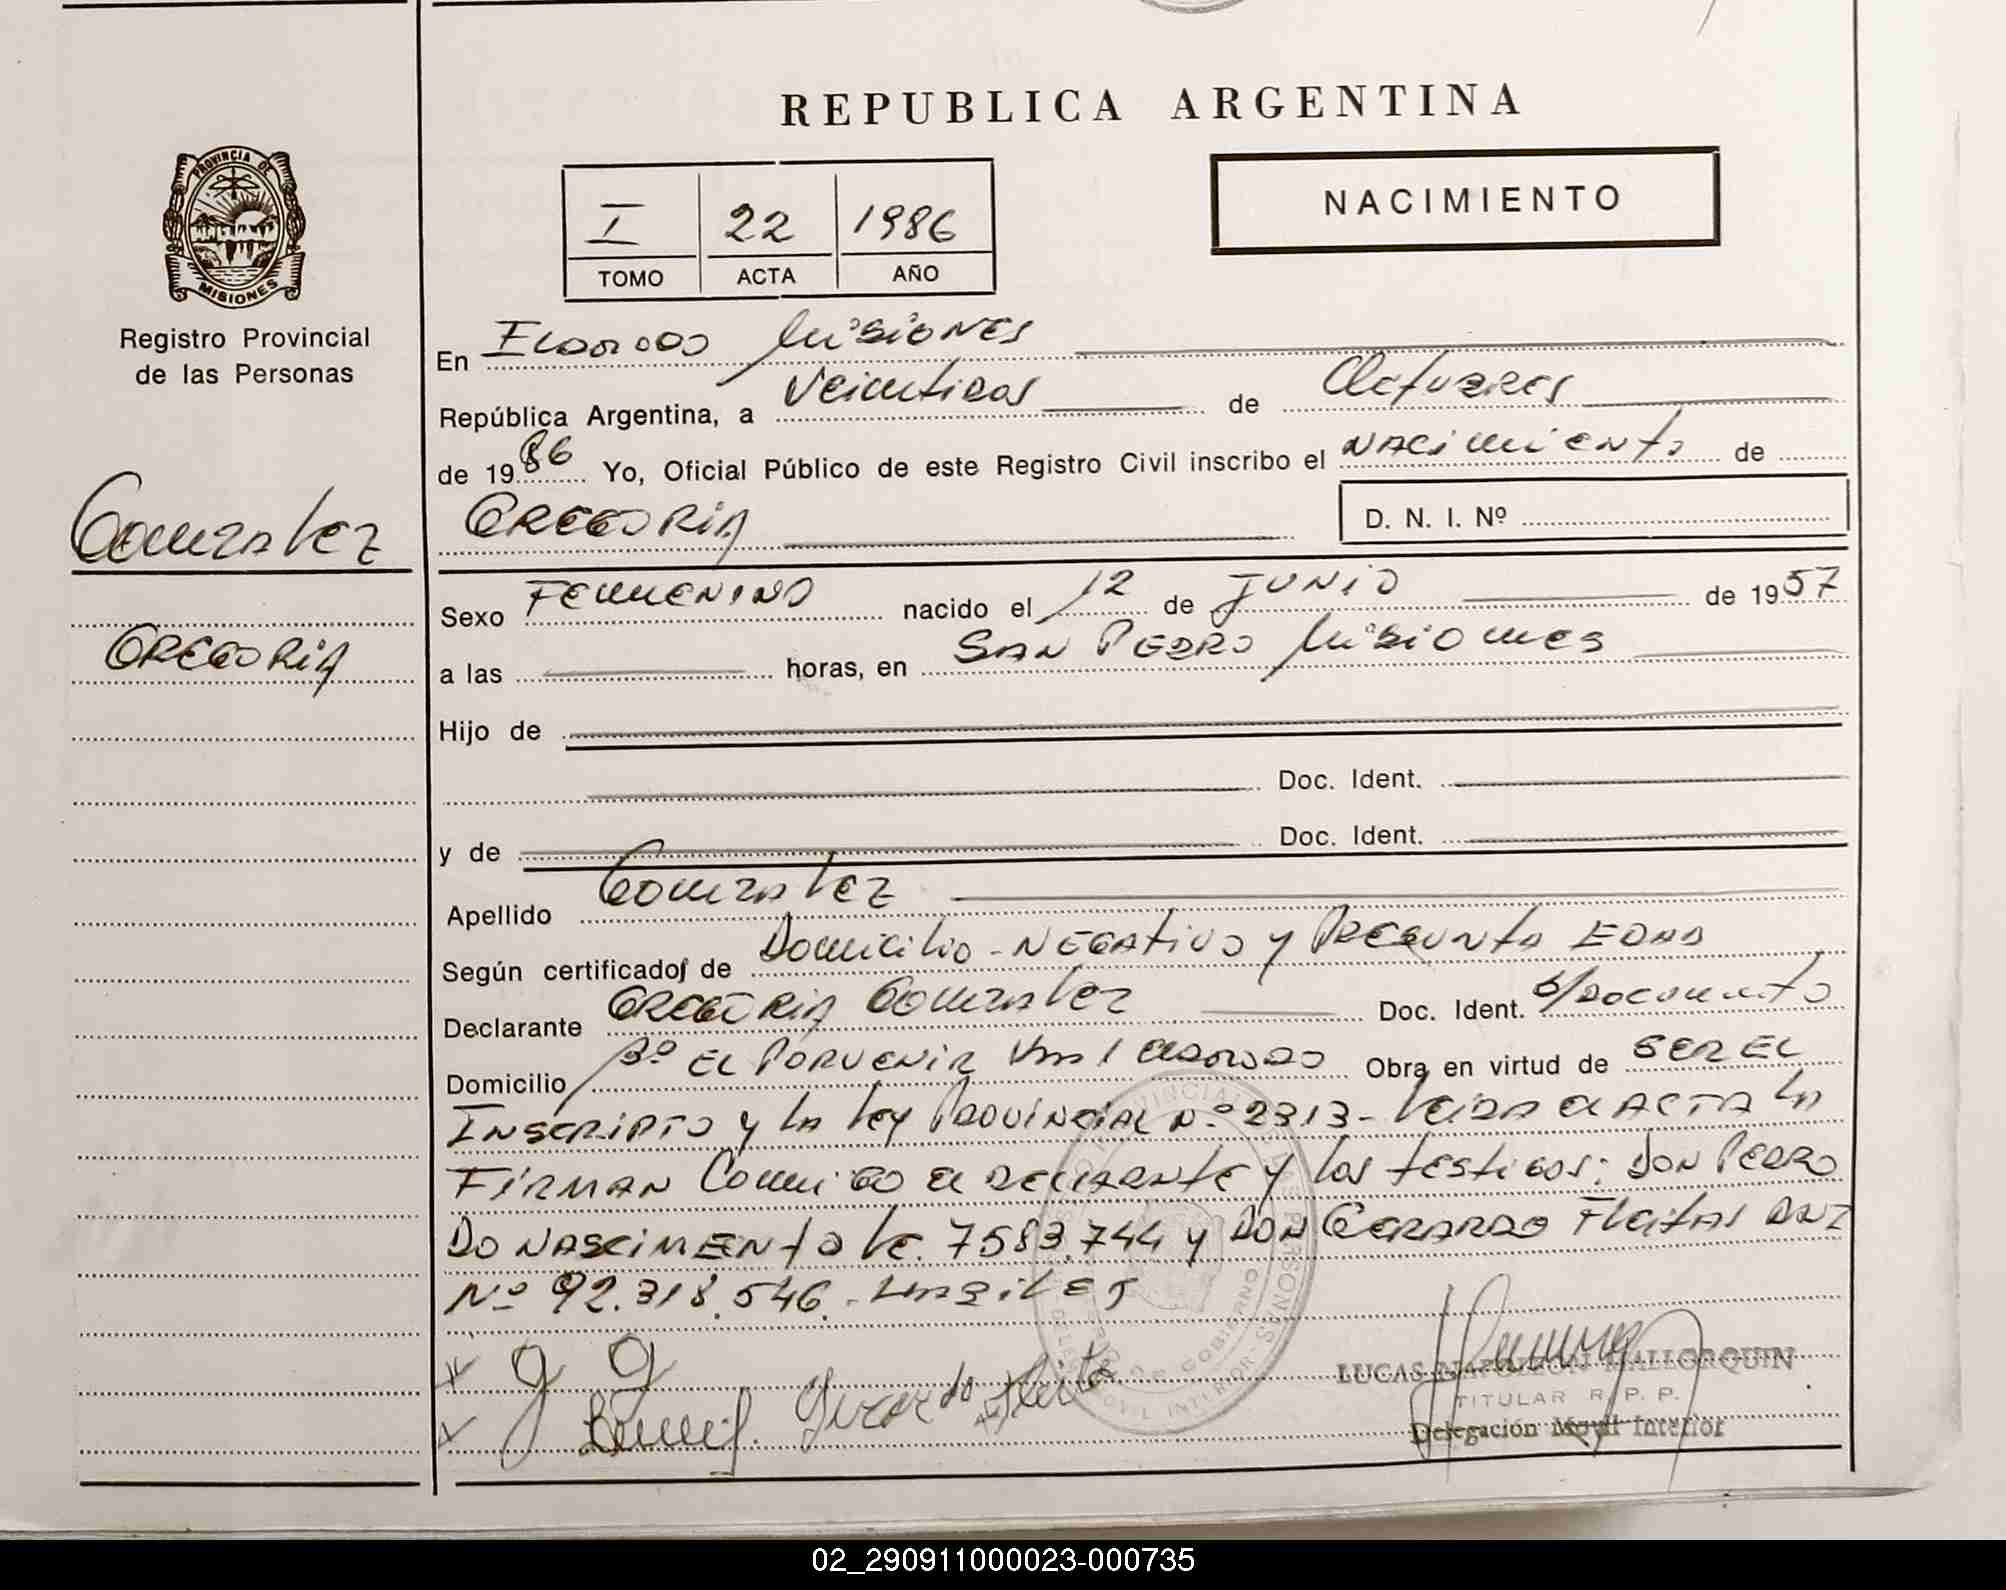 REPUBLICA ARGENTINA
NACIMIENTO
I 22 1986
TOMO ACTA AÑO
PROVINCIA DE
MISIONES
Registro Provincial
de las Personas
En Eldorado Misiones
República Argentina, a Veintidos de Octubre
de 1986 Yo, Oficial Público de este Registro Civil inscribo el NACIMIENTO de
GREGORIA
D. N. I. Nº
Gonzalez
GREGORIA
Sexo FEMENINO nacido el 12 de JUNIO de 1957
a las horas, en SAN PEDRO Misiones
Hijo de
Doc. Ident.
y de Doc. Ident.
Apellido Gonzalez
Según certificados de Domicilio - NEGATIVO y PRESUNTA EDAD
Declarante GREGORIA Gonzalez Doc. Ident. S/Documento
Domicilio Bº EL PORVENIR Eldorado Obra en virtud de SER EL
INSCRIPTO y la ley PROVINCIAL Nº 2313 - leida el ACTA la
FIRMAN Conmigo el declarante y los testigos: DON PEDRO
DO NASCIMENTO le. 7583.744 y DON GERARDO Fleitas DNI
Nº 92.318.546. HABILES
Gerardo Fleita
LUCAS NAPOLEON MALLORQUIN
TITULAR R. P. P.
Delegación Movil Interior
02_290911000023-000735